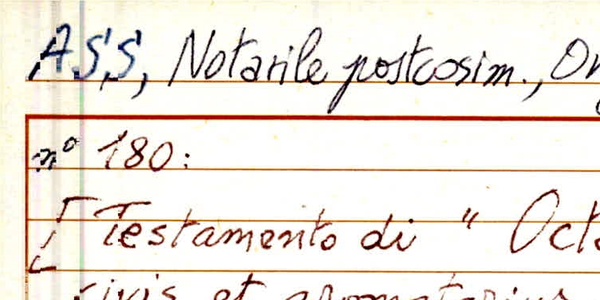 ASS, Notarile postcosim., Or
n° 180:
[Testamento di " Octa
civis et aromatarius